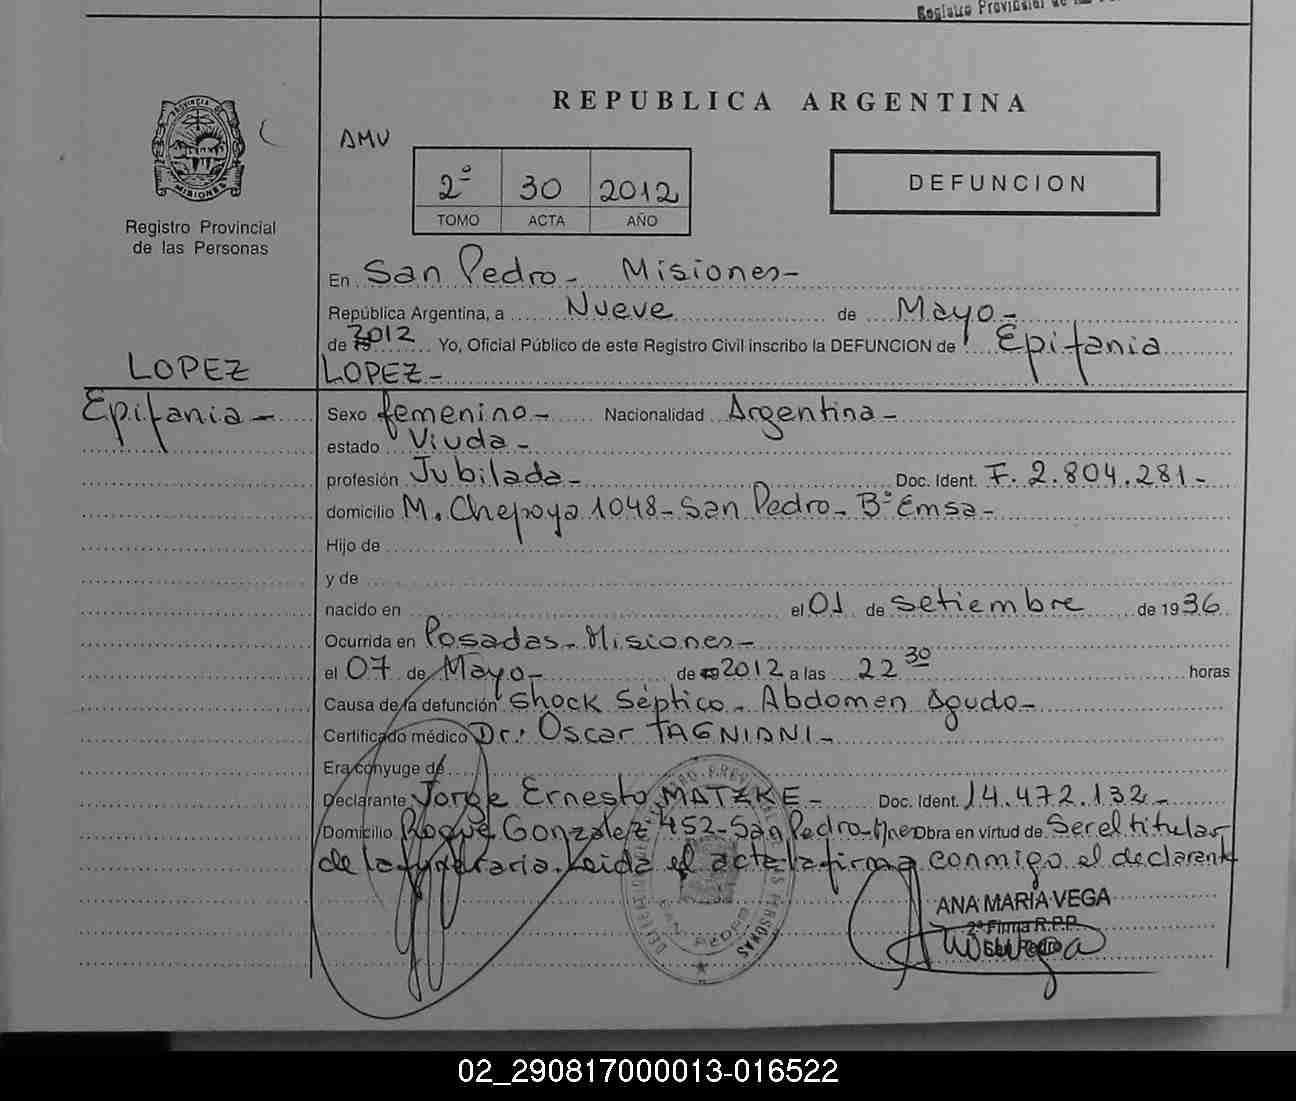 Registro Provincial de las
REPUBLICA ARGENTINA
PROVINCIA DE
MISIONES
Registro Provincial
de las Personas
AMV
2º 30 2012
TOMO ACTA AÑO
DEFUNCION
En San Pedro - Misiones -
República Argentina, a Nueve de Mayo -
de 2012 Yo, Oficial Público de este Registro Civil inscribo la DEFUNCION de Epifania
LOPEZ -
LOPEZ
Epifania -
Sexo femenino - Nacionalidad Argentina -
estado Viuda -
profesión Jubilada - Doc. Ident. F. 2.804.281 -
domicilio M. Chepoya 1048 - San Pedro - Bº Emsa -
Hijo de
y de
nacido en el 01 de setiembre de 1936
Ocurrida en Posadas - Misiones -
el 07 de Mayo - de 2012 a las 22 30 horas
Causa de la defunción Shock Séptico - Abdomen Agudo -
Certificado médico Dr.: Oscar TAGNIANI -
Era cónyuge de
Declarante Jorge Ernesto MATZKE - Doc. Ident. 14.472.132 -
Domicilio Roque Gonzalez 452 - San Pedro - Mnes Obra en virtud de Ser el titular
de la funeraria. Leida el acta la firma conmigo el declarante
ANA MARIA VEGA
2ª Firma R.P.P.
San Pedro
SAN PEDRO
02_290817000013-016522